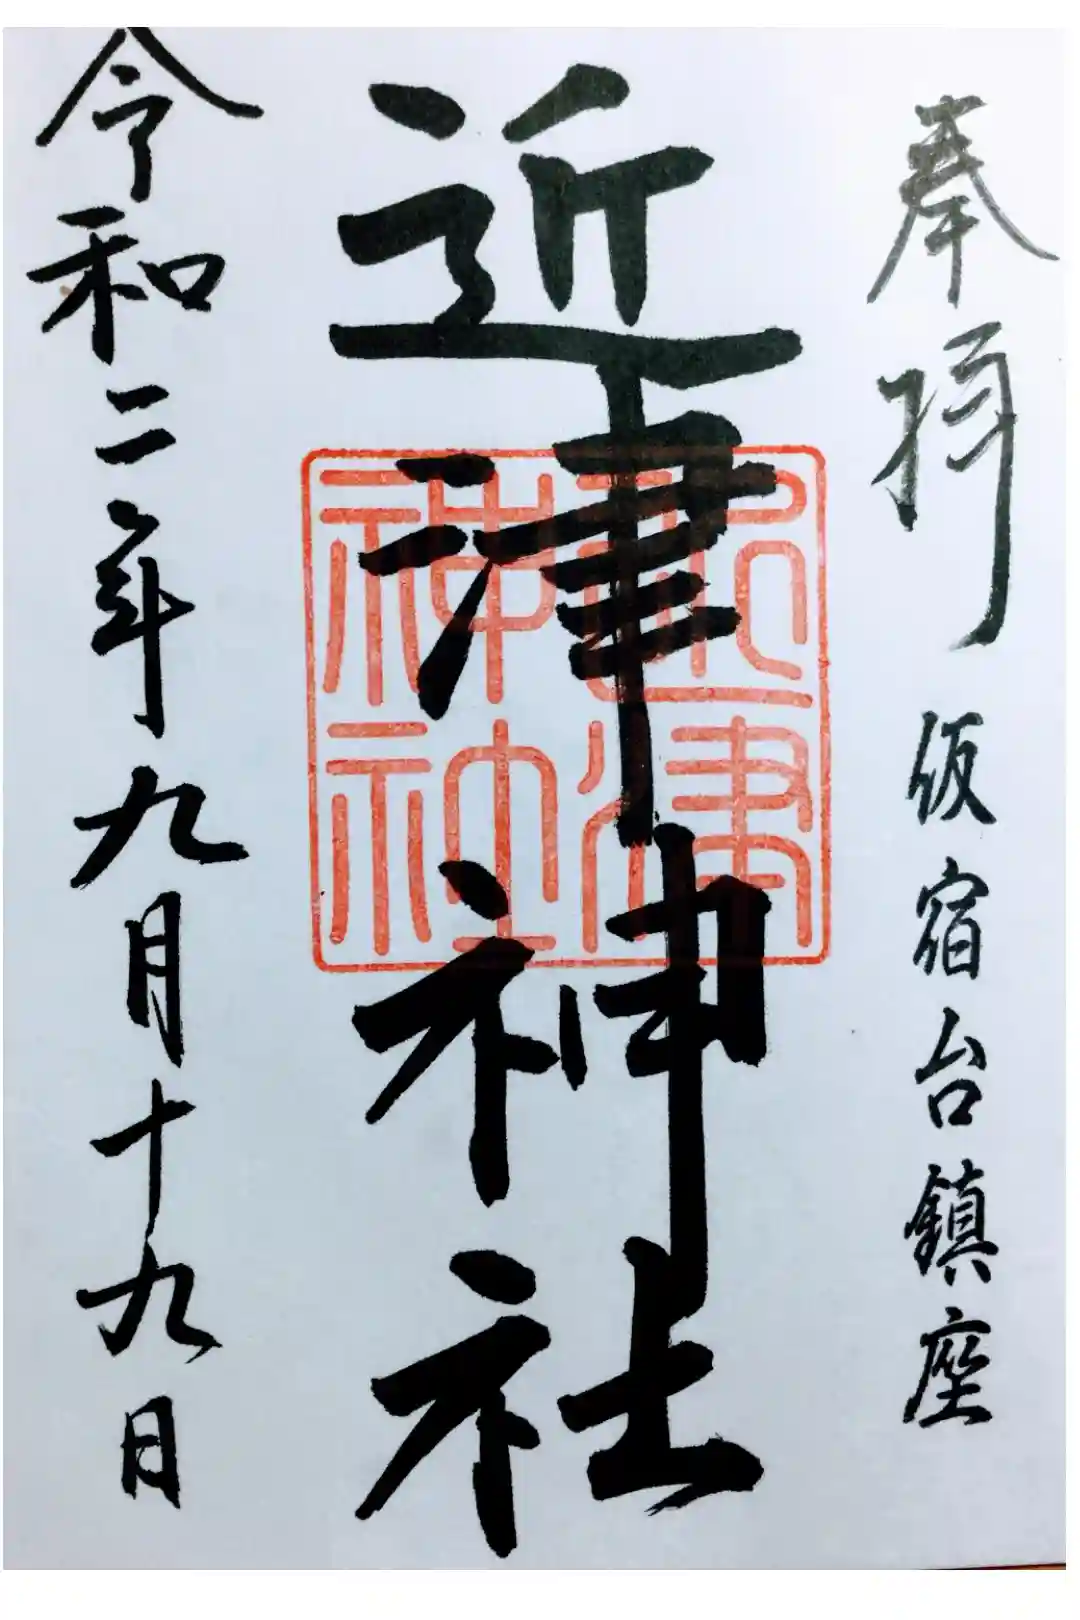 奉拝 仮宿台鎮座
近津神社
近津
神社
令和二年九月十九日